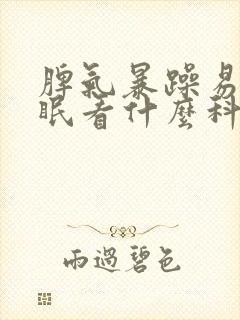 脾氣暴躁易
眠看什麼科
雨過碧色